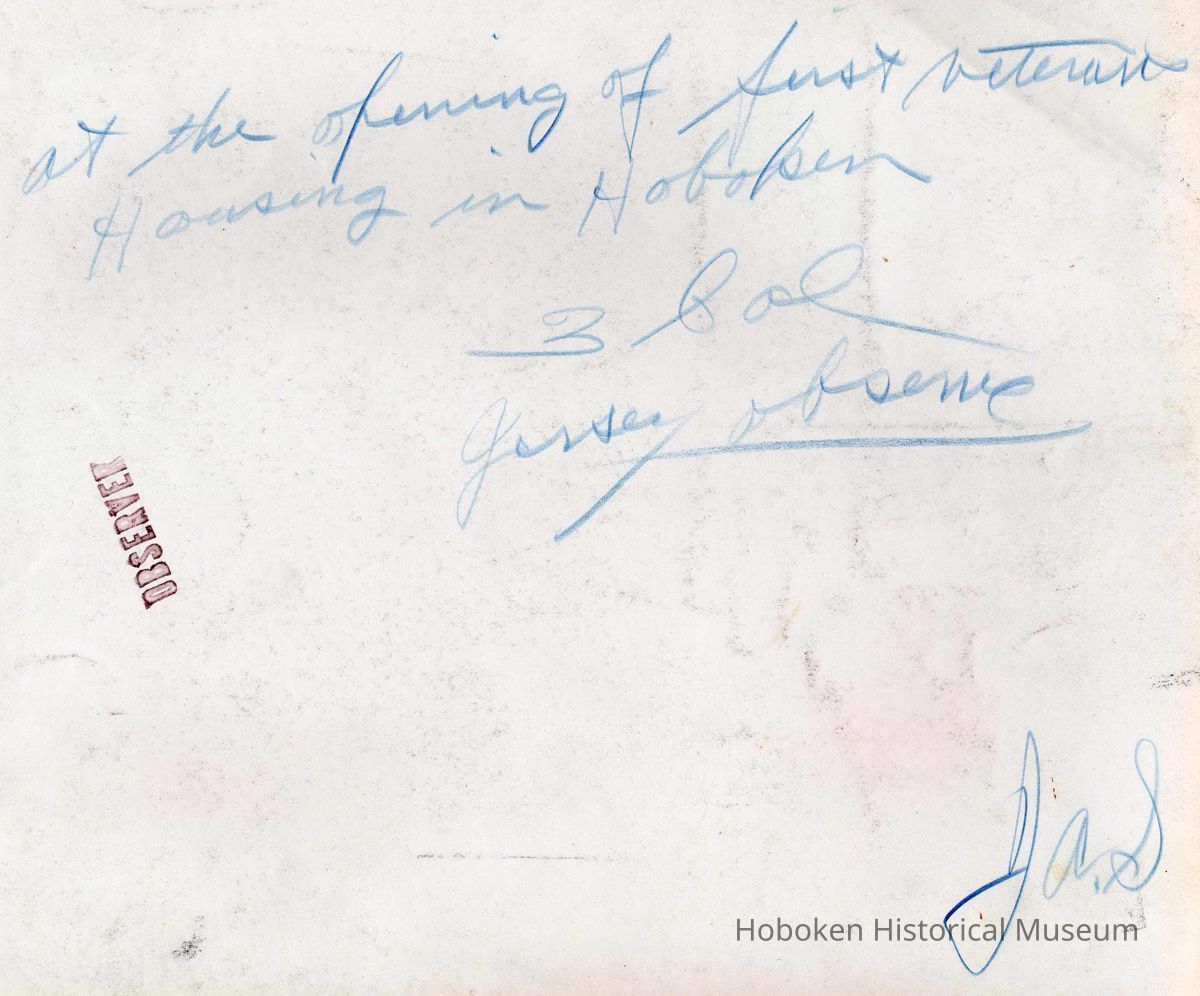 at the opening of first veterans
Housing in Hoboken
3 Col
Jersey Observe
OBSERVER
Ja.S
Hoboken Historical Museum